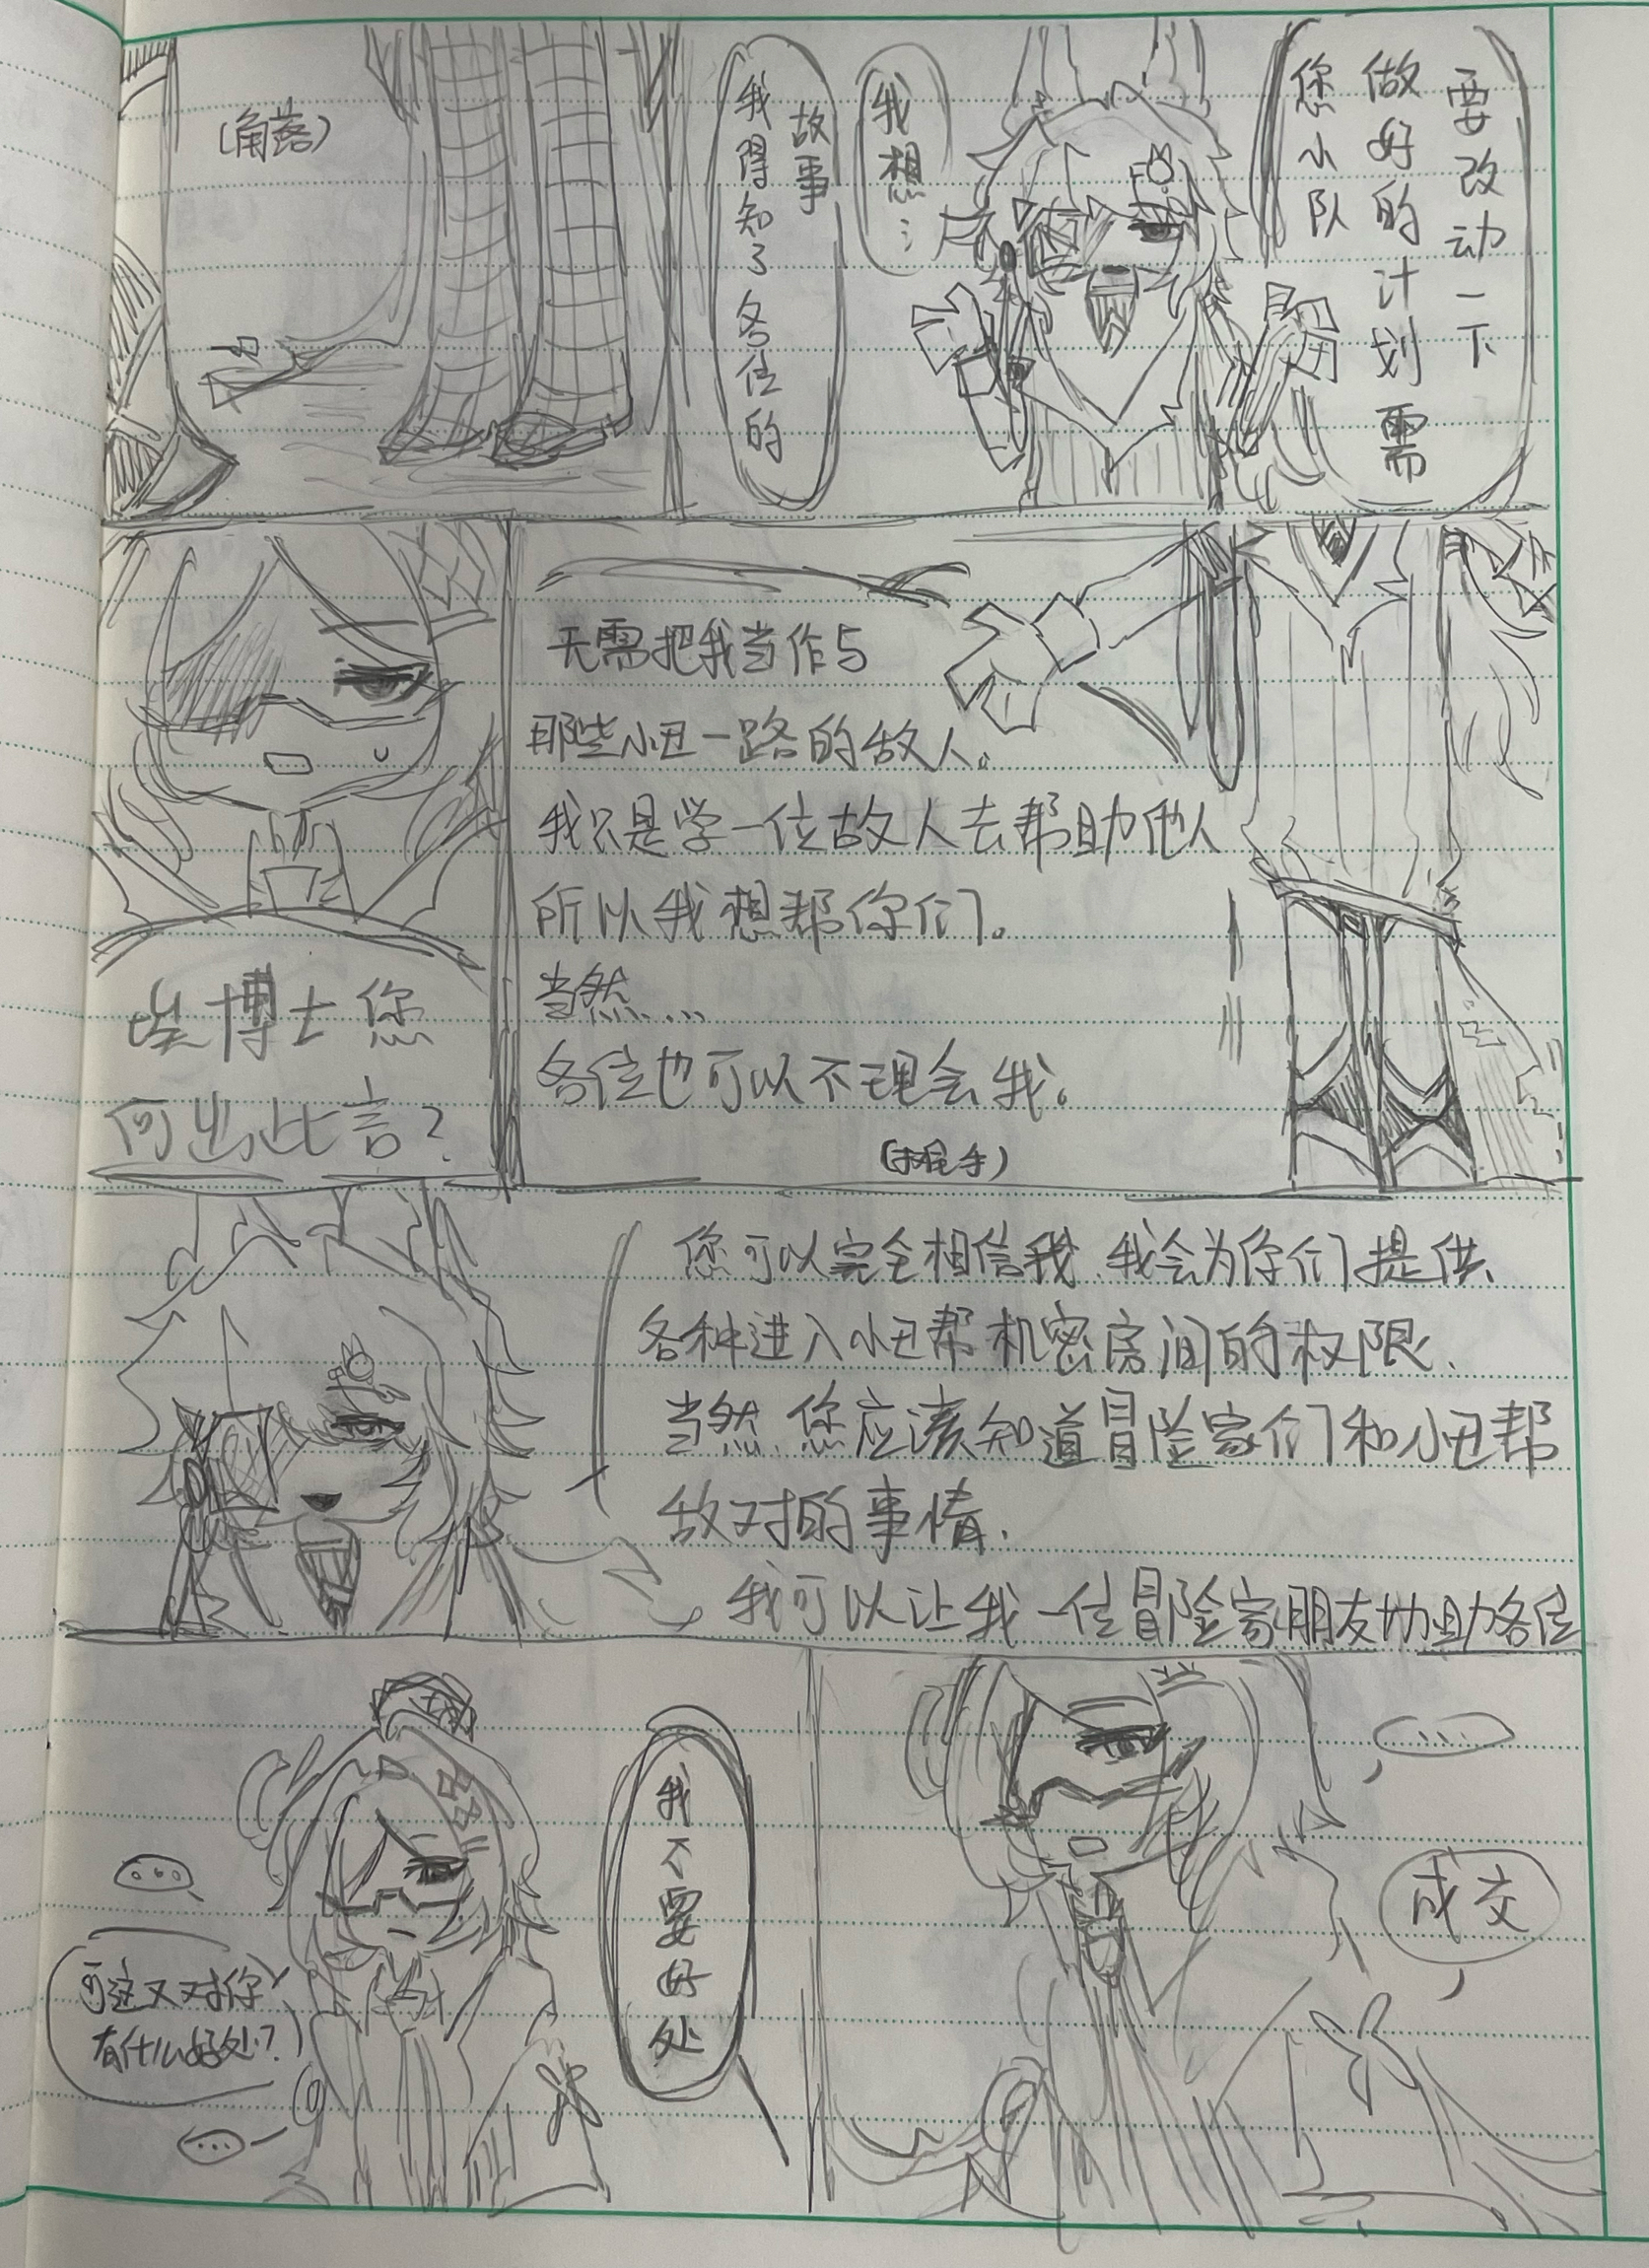 (角落)
我想…
我得知了各位的
故事
您小队
做好的计划需
要改动一下
埃博士您
何出此言？
无需把我当作与
那些小丑一路的敌人。
我只是学一位故人去帮助他人
所以我想帮你们。
当然...
各位也可以不理会我。
您可以完全相信我、我会为你们提供、
各种进入小丑帮机密房间的权限、
当然、您应该知道冒险家们和小丑帮
敌对的事情、
我可以让我一位冒险家朋友协助各位
...
可这又对你
有什么好处？
...
我不要好处
....
成交